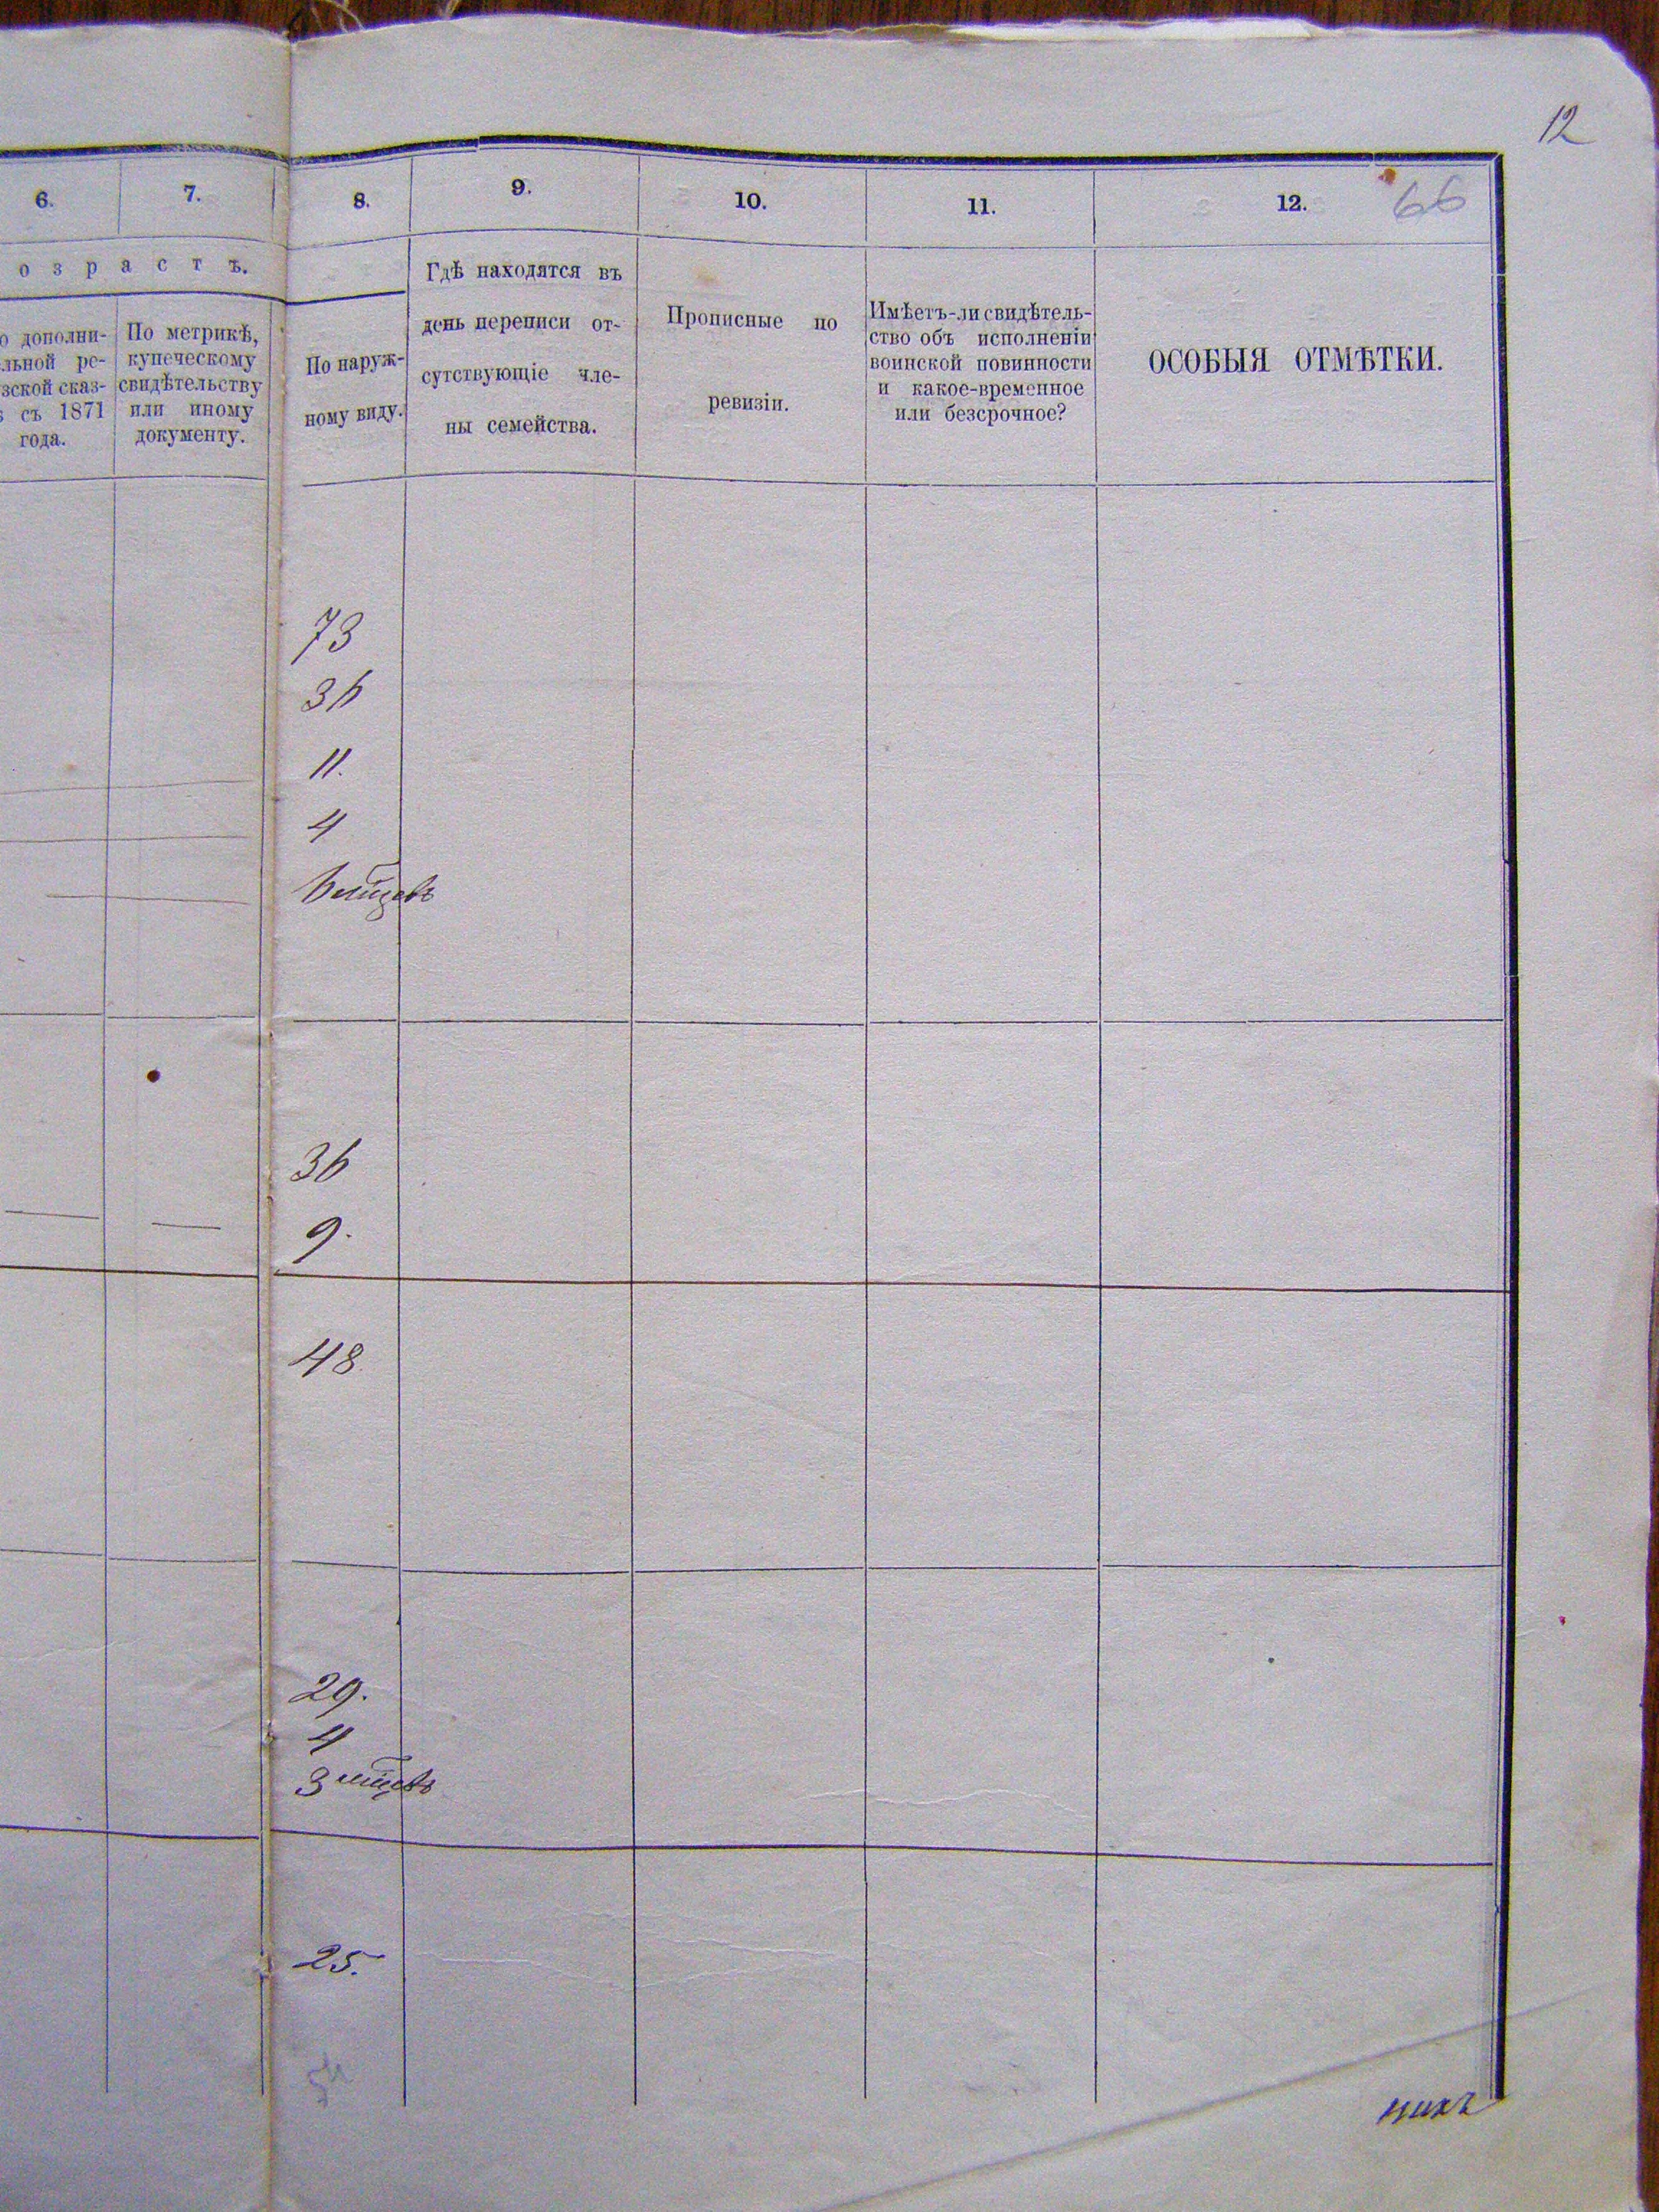 12
66
6. 7. 8. 9. 10. 11. 12.
о з р а с т ъ.
о дополни-
льной ре-
зской сказ-
съ 1871
года.
По метрикѣ,
купеческому
свидѣтельству
или иному
документу.
По наруж-
ному виду.
Гдѣ находятся въ
день переписи от-
сутствующіе чле-
ны семейства.
Прописные по
ревизіи.
Имѣетъ-ли свидѣтель-
ство объ исполненіи
воинской повинности
и какое-временное
или безсрочное?
ОСОБЫЯ ОТМѢТКИ.
73
36
11.
4
6 мѣсцевъ
36
9.
48
29.
4
3 мѣсцевъ
25.